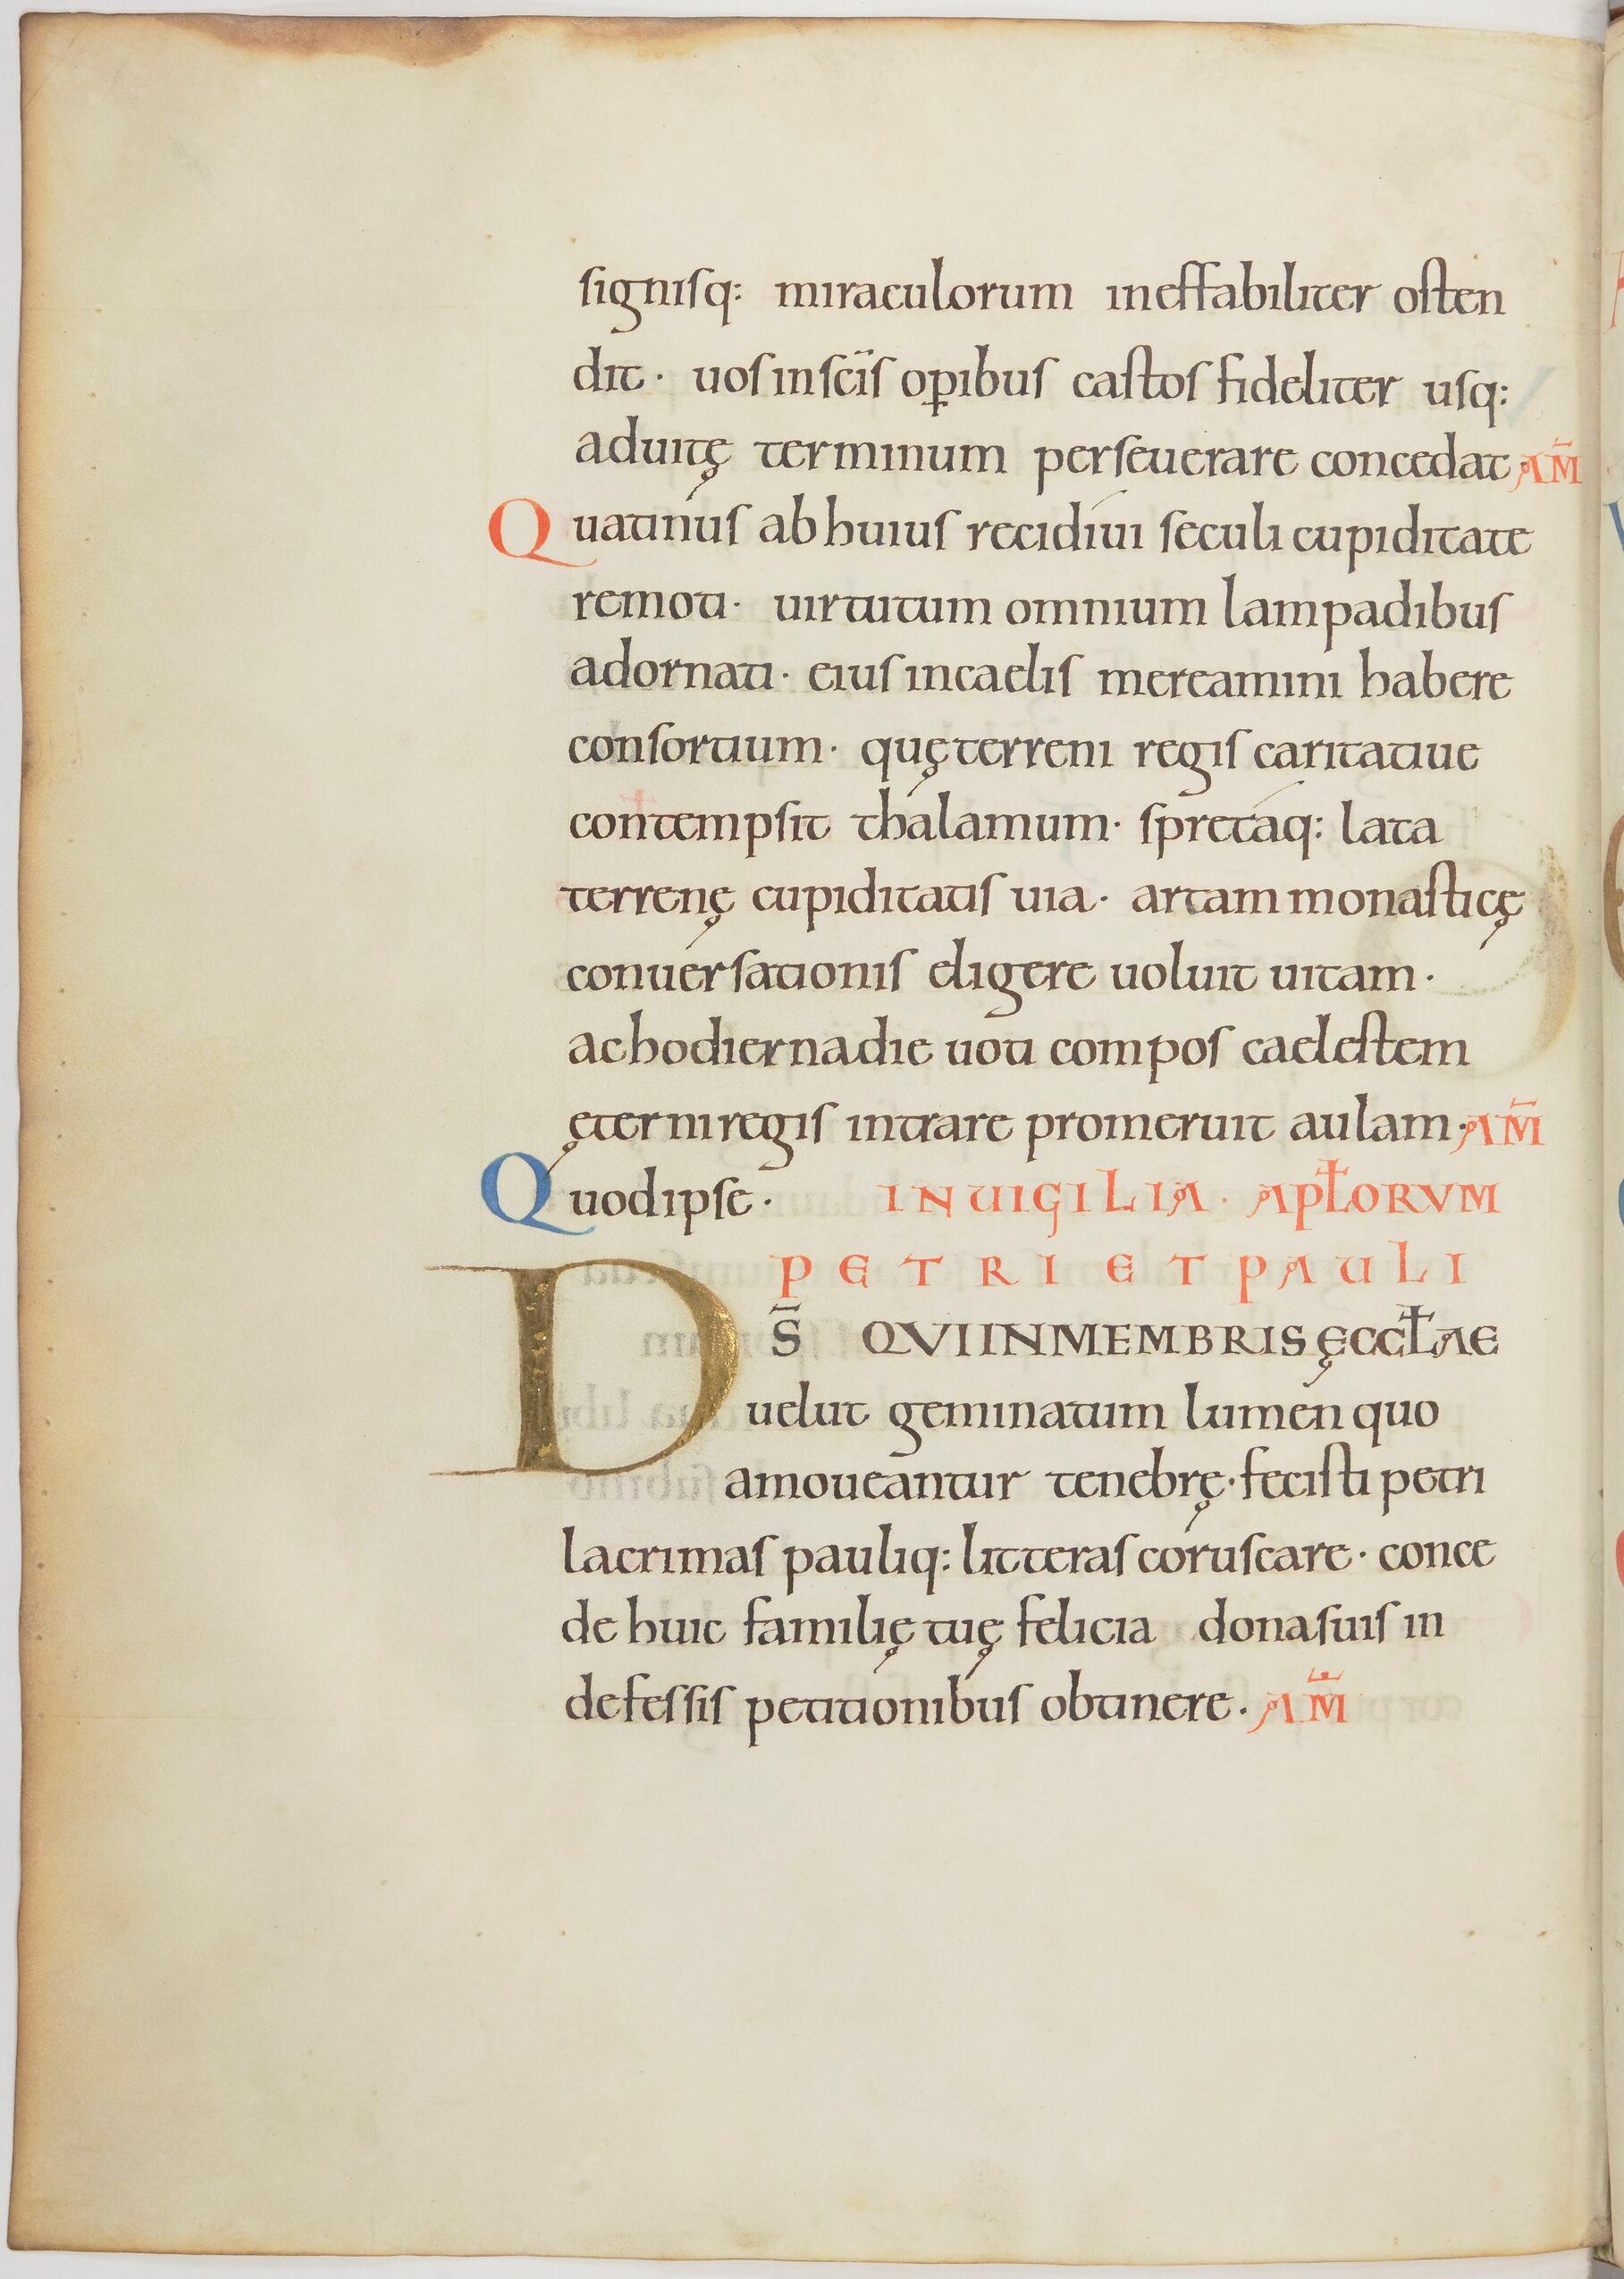 signisq: miraculorum ineffabiliter osten
dit· uos in sc̄is op̲ibus castos fideliter usq:
ad uitę terminum perseuerare concedat· AM̄
Quatinus ab huius recidiui seculi cupiditate
remoti· uirtutum omnium lampadibus
adornati· eius in caelis mereamini habere
consortium· quę terreni regis caritatiue
contempsit thalamum· spretaq: lata
terrenę cupiditatis uia· artam monasticę
conuersationis eligere uoluit uitam·
ac hodierna die uoti compos caelestem
ęterni regis intrare promeruit aulam· AM̄
Quod ipse· IN UIGILIA· APŁORVM
PETRI ET PAULI
DS̄ QVI IN MEMBRIS ĘCCŁAE
uelut geminatum lumen quo
amoueantur tenebrę· fecisti petri
lacrimas pauliq: litteras coruscare· conce
de huic familię tuę felicia dona suis in
defessis petitionibus obtinere· AM̄